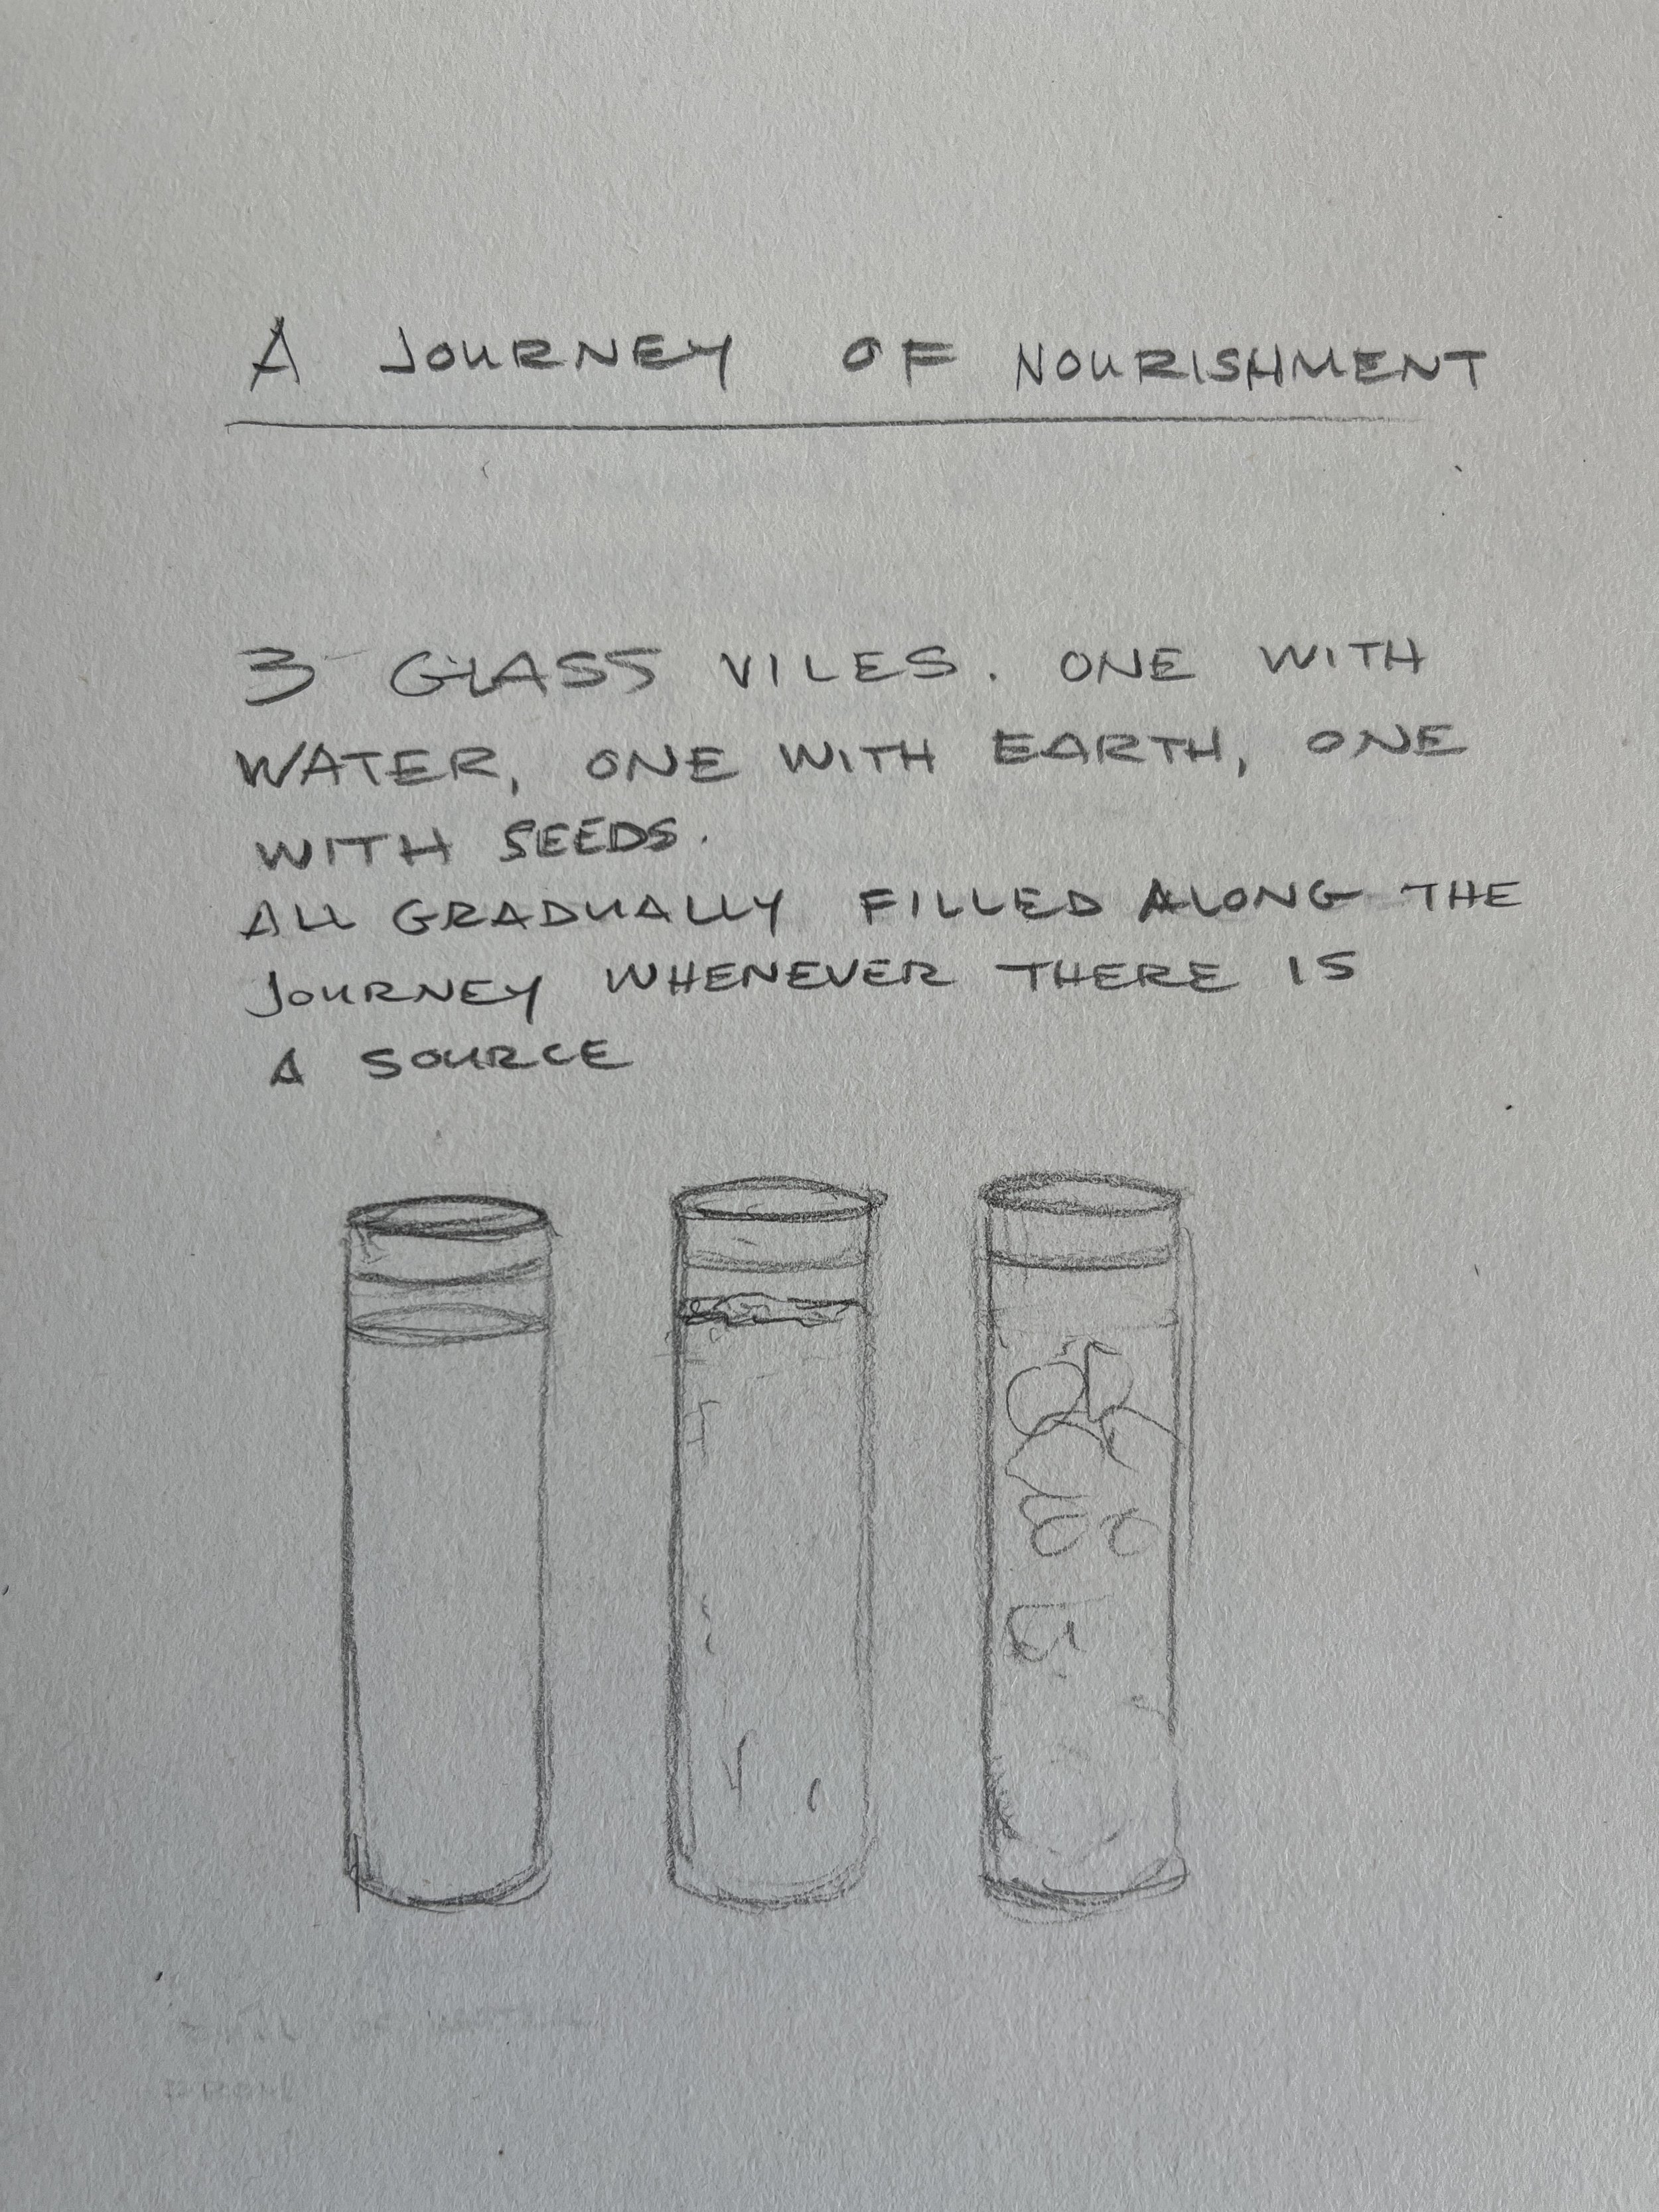 A JOURNEY OF NOURISHMENT
3 GLASS VILES. ONE WITH
WATER, ONE WITH EARTH, ONE
WITH SEEDS.
ALL GRADUALLY FILLED ALONG THE
JOURNEY WHENEVER THERE IS
A SOURCE